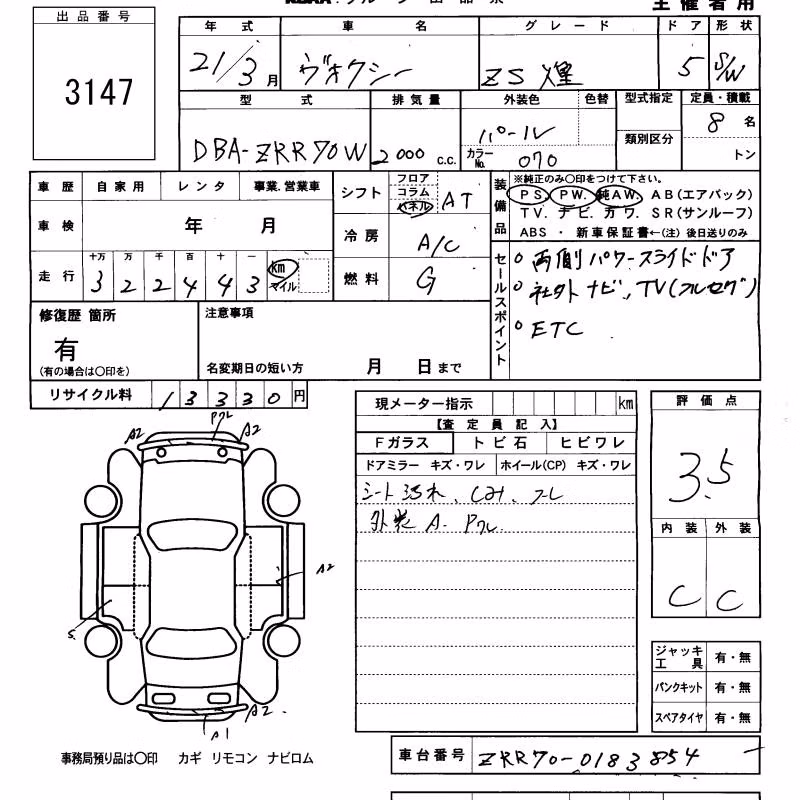 出品番号
3147
主催者用
年式 車名 グレード ドア 形状
21/3月 ヴォクシー ZS 煌 5 S/W
型式 排気量 外装色 色替 型式指定 定員・積載
DBA-ZRR70W 2000 c.c. パール 類別区分 8名
カラーNo. 070 トン
車歴 自家用 レンタ 事業.営業車
車検 年 月
走行 十万 万 千 百 十 一
3 2 2 4 4 3 km マイル
シフト フロア コラム パネル AT
冷房 A/C
燃料 G
装備品
※純正のみ〇印をつけて下さい。
PS. PW. 純AW. AB(エアバック)
TV. ナビ. カワ. SR(サンルーフ)
ABS ・ 新車保証書←(注)後日送りのみ
セールスポイント
両側パワースライドドア
社外ナビ, TV(フルセグ)
ETC
修復歴 箇所
有
(有の場合は〇印を)
注意事項
名変期日の短い方 月 日まで
リサイクル料 13330円
現メーター指示 km
【査定員記入】
Fガラス トビ石 ヒビワレ
ドアミラー キズ・ワレ ホイール(CP) キズ・ワレ
シート汚れ、シミ、コレ
外装 A. Pワレ
評価点
3.5
内装 外装
C C
ジャッキ工具 有・無
パンクキット 有・無
スペアタイヤ 有・無
A2 Pワレ A2
A2
S.
A1 A2
事務局預り品は〇印 カギ リモコン ナビロム
車台番号 ZRR70-0183854